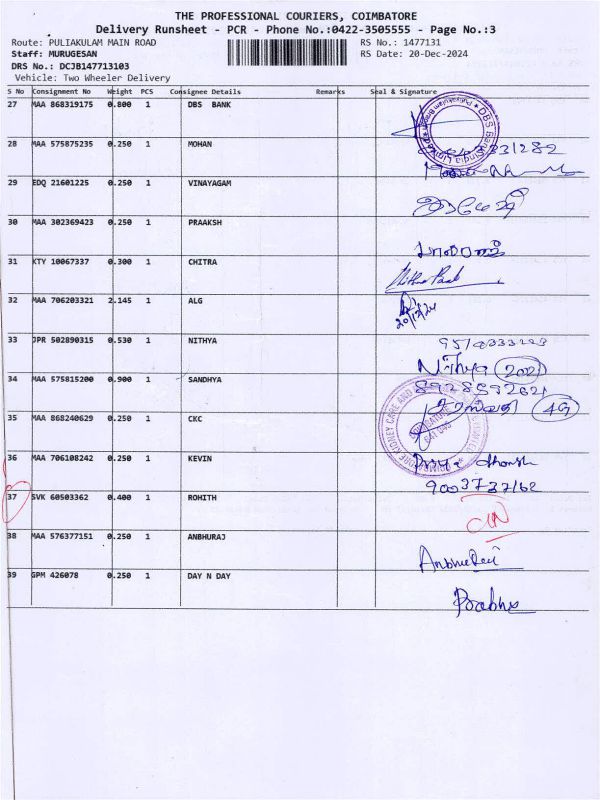 THE PROFESSIONAL COURIERS, COIMBATORE
Delivery Runsheet - PCR - Phone No.:0422-3505555 - Page No.:3
Route: PULIAKULAM MAIN ROAD
RS No.: 1477131
Staff: MURUGESAN
RS Date: 20-Dec-2024
DRS No.: DCJB147713103
Vehicle: Two Wheeler Delivery
S No Consignment No Weight PCS Consignee Details Remarks Seal & Signature
27 MAA 868319175 0.800 1 DBS BANK
28 MAA 575875235 0.250 1 MOHAN
29 EDQ 21601225 0.250 1 VINAYAGAM
30 MAA 302369423 0.250 1 PRAAKSH
31 KTY 10067337 0.300 1 CHITRA
32 MAA 706203321 2.145 1 ALG
20/12/24
33 JPR 502890315 0.530 1 NITHYA
Nithya 202
34 MAA 575815200 0.900 1 SANDHYA
8928592621
4G
35 MAA 868240629 0.250 1 CKC
36 MAA 706108242 0.250 1 KEVIN
9003737162
37 SVK 60503362 0.400 1 ROHITH
38 MAA 576377151 0.250 1 ANBHURAJ
39 GPM 426078 0.250 1 DAY N DAY
Prabhu